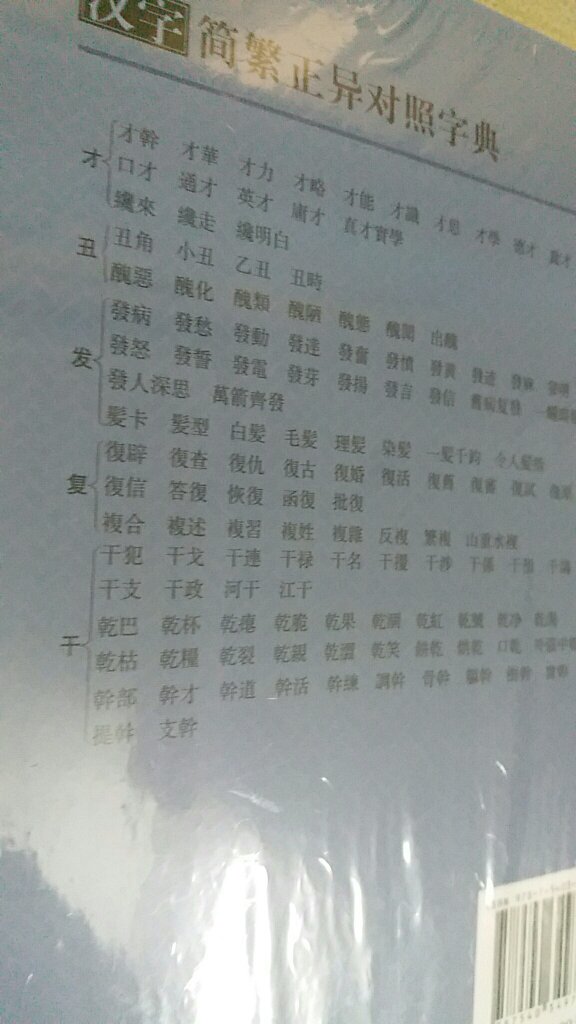 汉字简繁正异对照字典
才 才幹 才華 才力 才略 才能 才識 才思 才學
口才 通才 英才 庸才 真才實學
纔來 纔走 纔明白
丑 丑角 小丑 乙丑 丑時
醜惡 醜化 醜類 醜陋 醜態 醜聞 出醜
发 發病 發愁 發動 發達 發奮 發憤 發黃 發迹 發麻 發明
發怒 發誓 發電 發芽 發揚 發言 發信 舊病复發
發人深思 萬箭齊發
髮卡 髮型 白髮 毛髮 理髮 染髮 一髮千鈞 令人髮指
复 復辟 復查 復仇 復古 復婚 復活 復舊 復審 復試
復信 答復 恢復 函復 批復
複合 複述 複習 複姓 複雜 反複 繁複 山重水複
干 干犯 干戈 干連 干禄 干名 干擾 干涉 干係 干預
干支 干政 河干 江干
乾巴 乾杯 乾癟 乾脆 乾果 乾涸 乾紅 乾凈
乾枯 乾糧 乾裂 乾親 乾澀 乾笑 餅乾 烘乾 口乾
幹部 幹才 幹道 幹活 幹練 調幹 骨幹 軀幹 樹幹
提幹 支幹